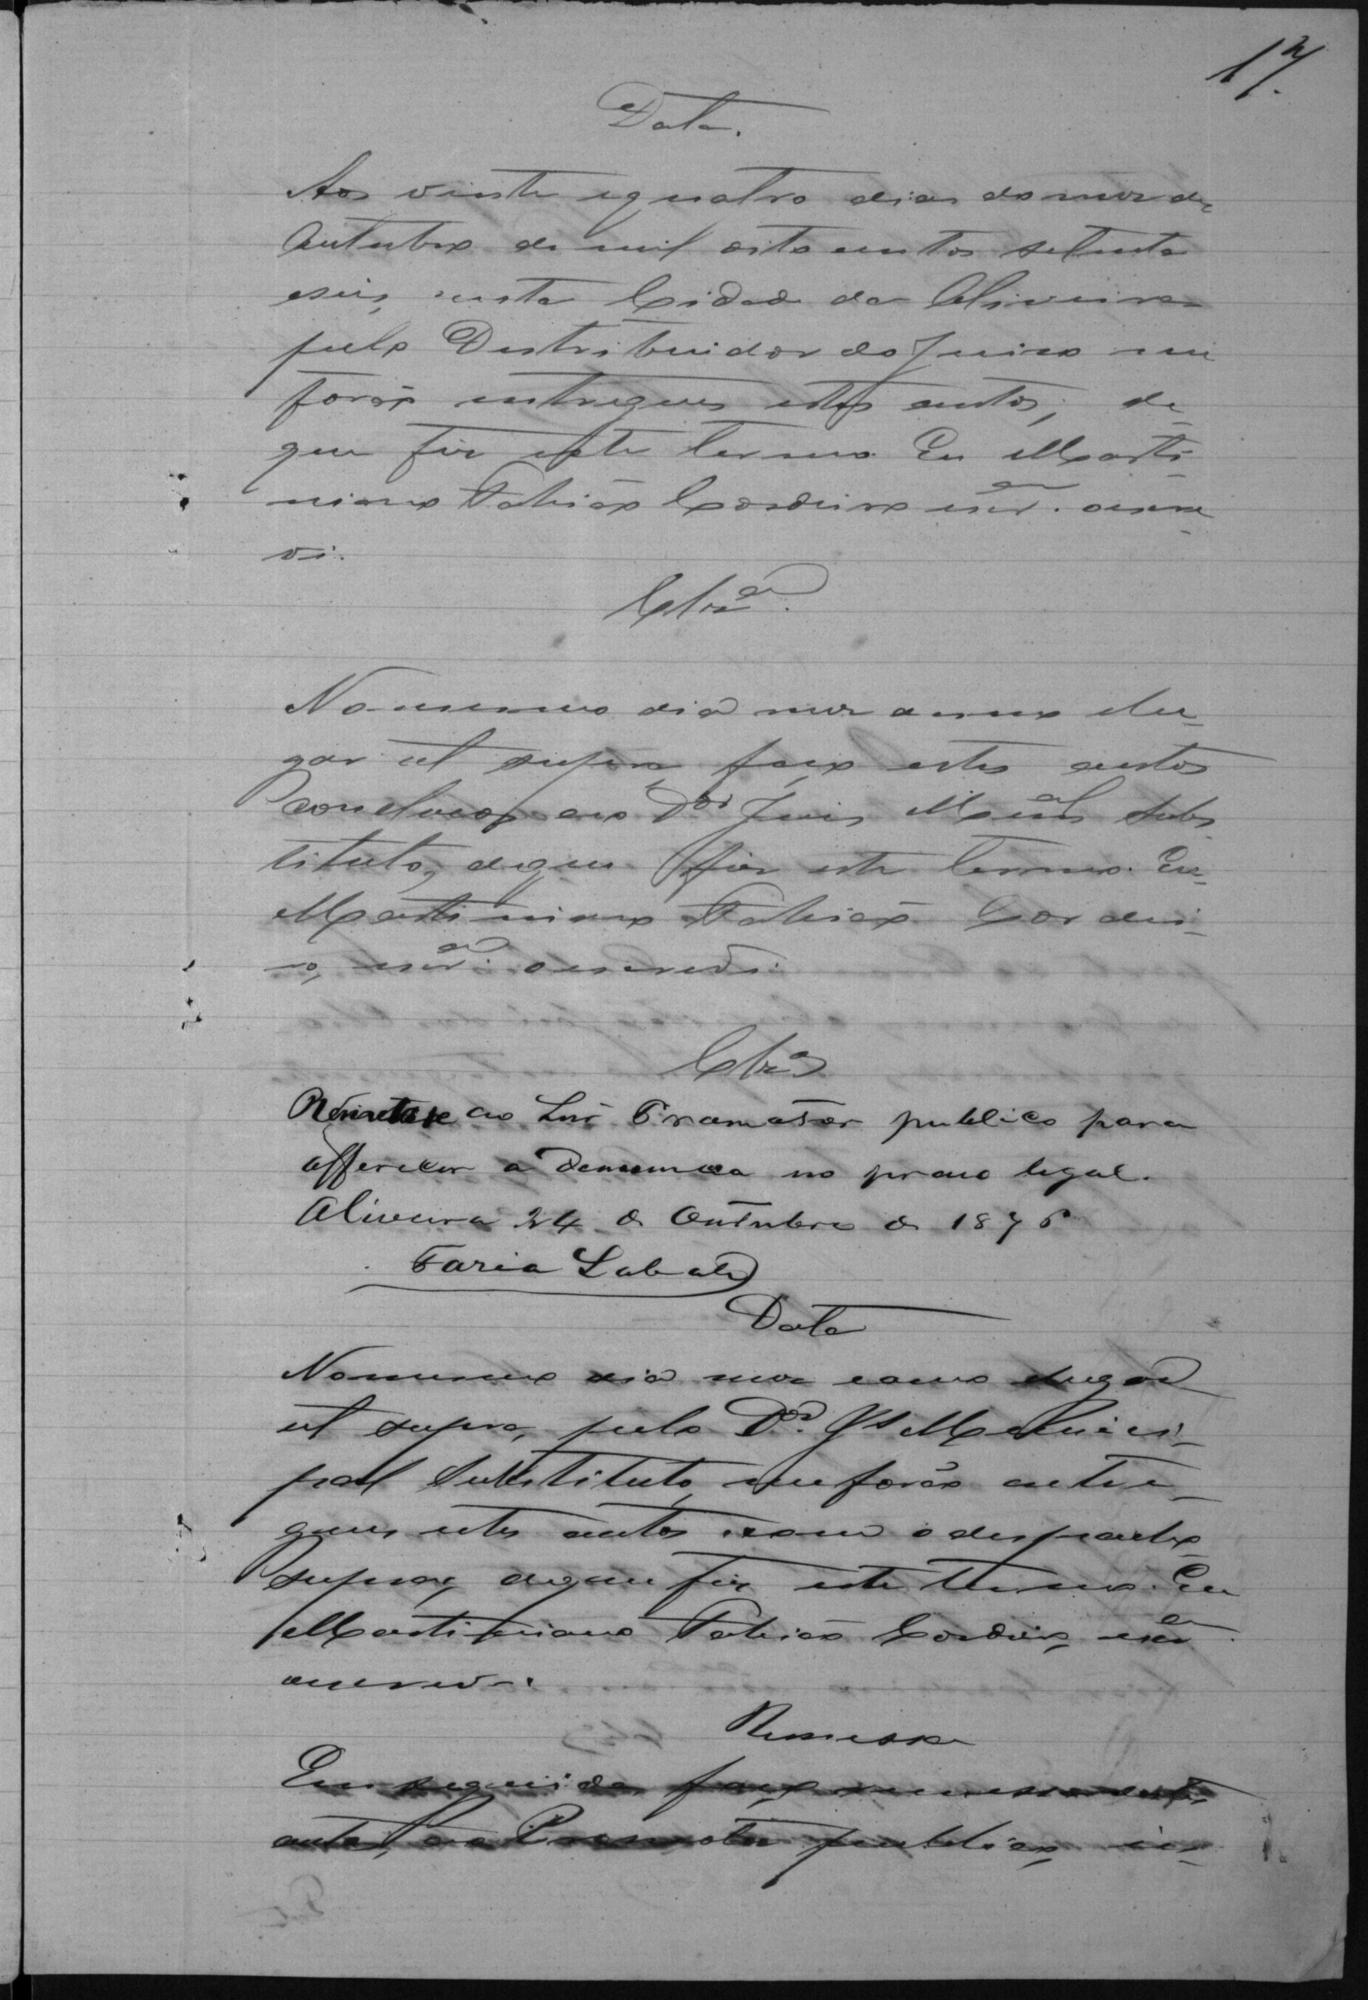 17.
Data.
Aos vinte e quatro dias do mez de
Outubro de mil oito centos setenta
e seis, nesta Cidade da Oliveira
pelo Destribuidor do Juizo me
forão entregues estes autos, de
que fiz este termo. Eu Marti-
niano Fabião Cordeiro escr.am o escre-
vi.
Clz.am
No mesmo dia mez anno e lu-
gar ut supra, faço estes autos
conclusos ao D.or Juiz M.al Subs-
tituto, de que fiz este termo. Eu
Martiniano Fabião Cordei-
ro, escr.am o escrevi.
Clz.os
ao Promotor publico para
offerecer a denuncia no praso legal.
Oliveira 24 de Outubro de 1876
Faria Lobato
Data
No mesmo dia mez e anno e lugar
ut supra, pelo D.or Municí-
pal Substituto, me forão entre-
gues estes autos com o despacho
supra, de que fiz este termo. Eu
Martiniano Fabião Cordeiro, escr.am
o escrevi.
Remessa
Em seguida faço remessa destes
autos, ao Promotor publico,